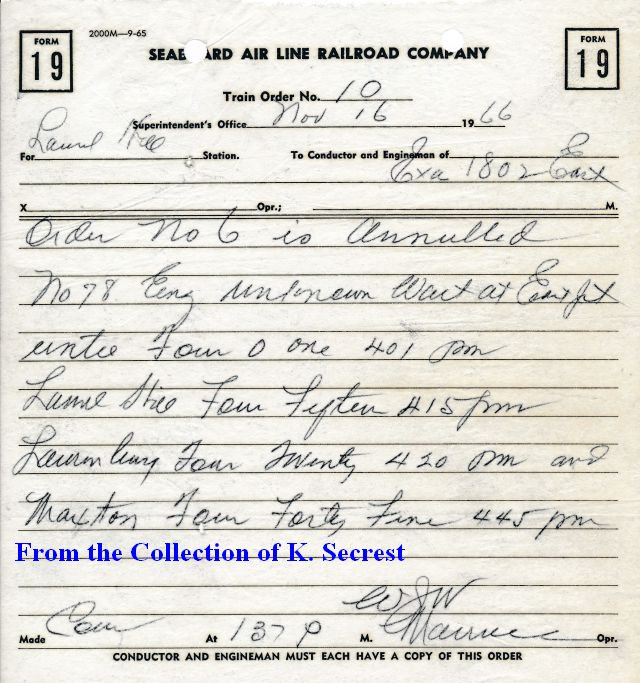 FORM 19
2000M—9-65
SEAB ARD AIR LINE RAILROAD COMPANY
FORM 19
Train Order No. 10
Superintendent's Office Nov 16 1966
For Laurel Hill Station. To Conductor and Engineman of
Exa 1802 East
X Opr.; M.
Order No 6 is annulled
No 78 Eng unknown Wait at East jct
until Four 0 one 401 pm
Laurel Hill Four Fifteen 415 pm
Laurinburg Four Twenty 420 pm and
Maxton Four Forty Five 445 pm
From the Collection of K. Secrest
WJW
Made Com At 137 P M. Opr.
CONDUCTOR AND ENGINEMAN MUST EACH HAVE A COPY OF THIS ORDER